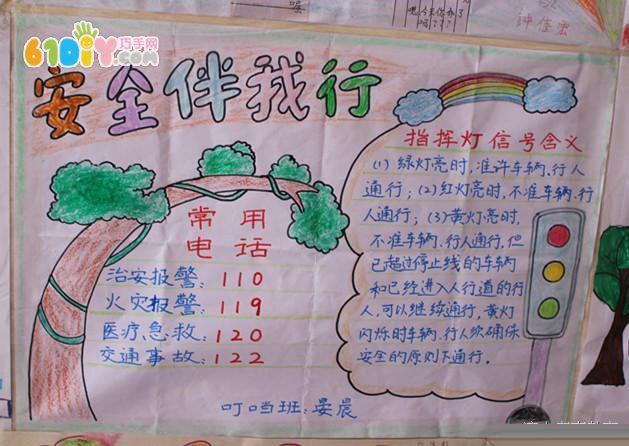 61DIY巧手网
安全伴我行
常用
电话
治安报警：110
火灾报警：119
医疗急救：120
交通事故：122
叮当班：晏晨
指挥灯信号含义
(1) 绿灯亮时，准许车辆、行人
通行；(2) 红灯亮时，不准车辆、行
人通行；(3) 黄灯亮时，
不准车辆、行人通行，但
已超过停止线的车辆
和已经进入人行道的行
人，可以继续通行，黄灯
闪烁时车辆、行人须确保
安全的原则下通行。
钟佳宏